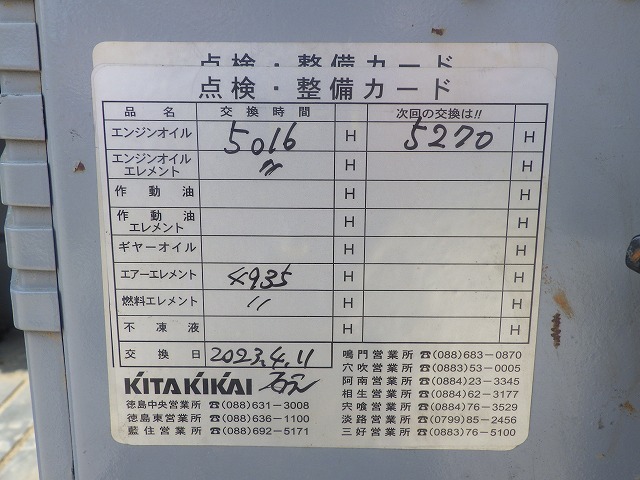 点検・整備カード
点検・整備カード
品名 交換時間 次回の交換は!!
エンジンオイル 5016 H 5270 H
エンジンオイルエレメント 〃 H H
作動油 H H
作動油エレメント H H
ギヤーオイル H H
エアーエレメント 4935 H H
燃料エレメント 〃 H H
不凍液 H H
交換日 2023.4.11
KITAKIKAI
徳島中央営業所 ☎(088)631-3008
徳島東営業所 ☎(088)636-1100
藍住営業所 ☎(088)692-5171
鳴門営業所 ☎(088)683-0870
穴吹営業所 ☎(0883)53-0005
阿南営業所 ☎(0884)23-3345
相生営業所 ☎(0884)62-3177
宍喰営業所 ☎(0884)76-3529
淡路営業所 ☎(0799)85-2456
三好営業所 ☎(0883)76-5100